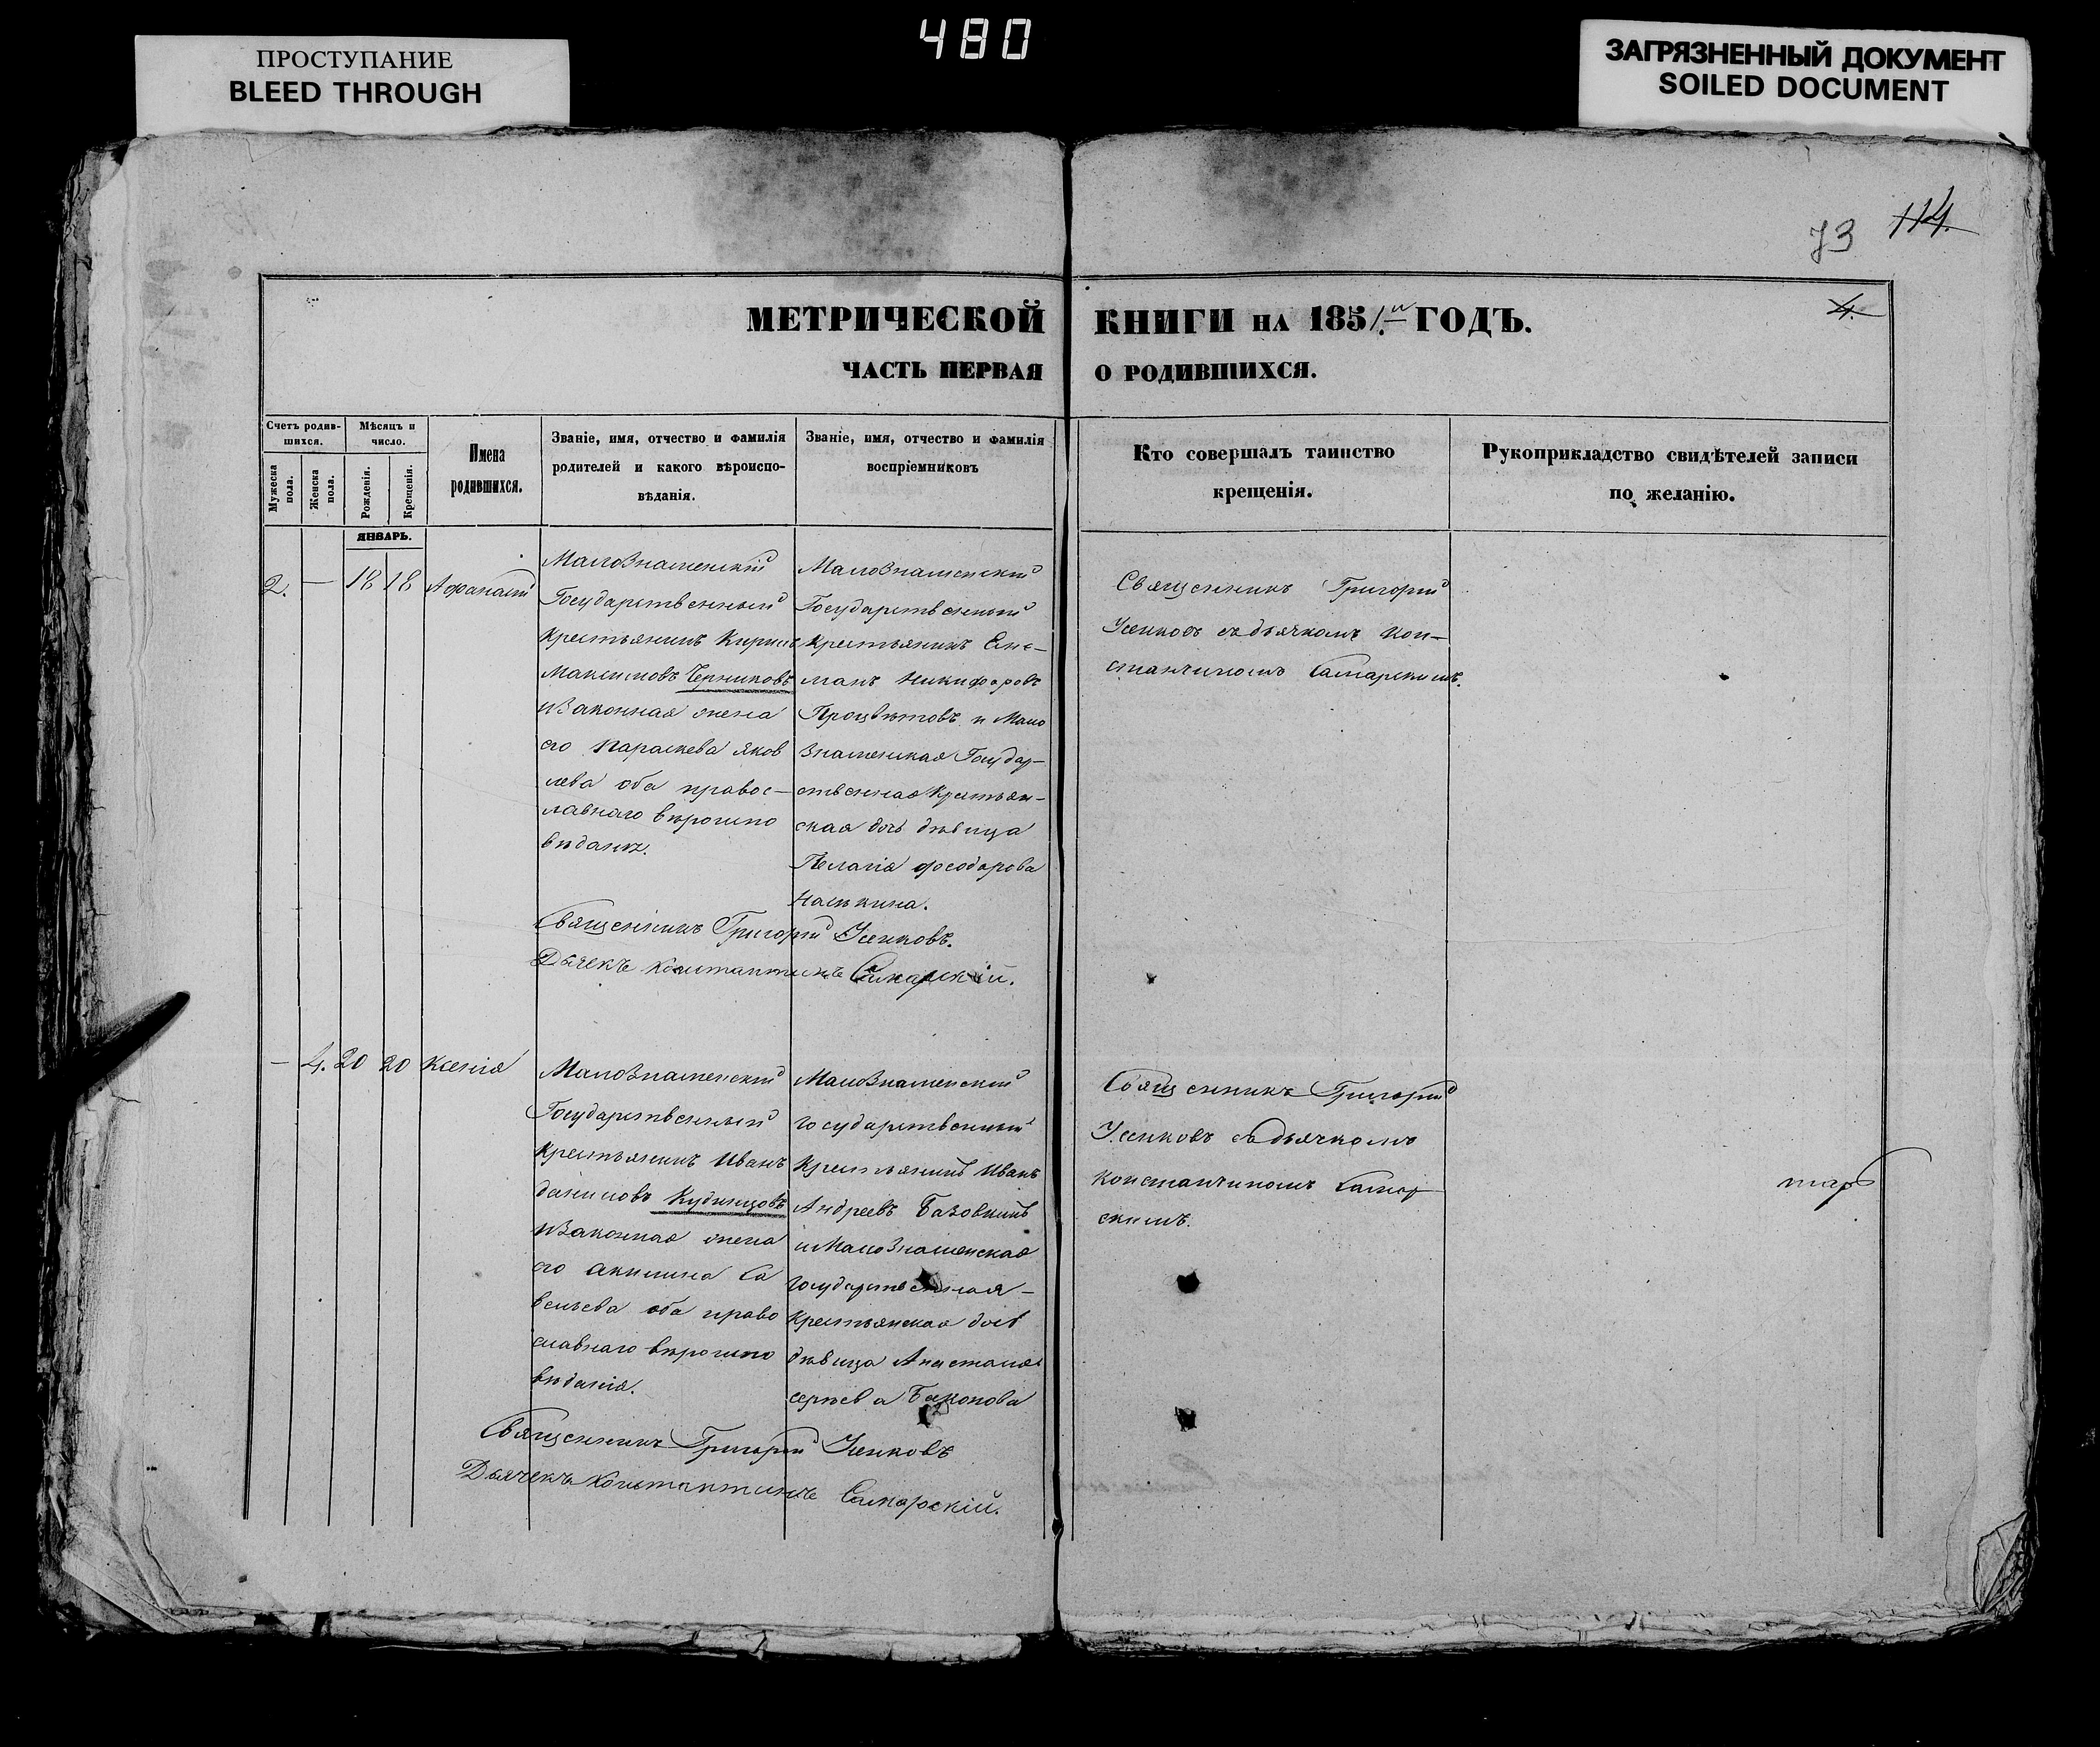 480
ПРОСТУПАНИЕ
BLEED THROUGH
ЗАГРЯЗНЕННЫЙ ДОКУМЕНТ
SOILED DOCUMENT
73 114.
МЕТРИЧЕСКОЙ КНИГИ НА 1851.й ГОДЪ.
4.
ЧАСТЬ ПЕРВАЯ О РОДИВШИХСЯ.
Счетъ родив-
шихся.
Мужеска
пола.
Женска
пола.
Мѣсяцъ и
число.
Рожденія.
Крещенія.
Имена
родившихся.
Званіе, имя, отчество и фамилія
родителей и какого вѣроиспо-
вѣданія.
Званіе, имя, отчество и фамилія
воспріемниковъ
Кто совершалъ таинство
крещенія.
Рукоприкладство свидѣтелей записи
по желанію.
ЯНВАРЬ.
2. — 18 18 Афанасій
Малознаменскій
Государственный
Крестьянинъ Кирилъ
Максимовъ Черниковъ
изаконная жена
его Параскева Яков
лева оба правос-
лавнаго вѣроиспо
вѣданія.
Малознаменскій
Государственный
Крестьянинъ
Никифоровъ
Процвѣтовъ и Мало
Знаменская Государ-
ственная Крестьян-
ская дочь дѣвица
Пелагія Феодорова
Священникъ Григорій
Усенковъ съ дьячкомъ Кон-
стантиномъ Самарскимъ.
Священникъ Григорій Усенковъ.
Дьячекъ Константинъ Самарскій.
— 4. 20 20 Ксенія
Малознаменскій
Государственный
Крестьянинъ Иванъ
Даниловъ Кудинцовъ
изаконная жена
его Акилина Са
вельева оба право
славнаго вѣроиспо
вѣданія.
Малознаменскій
государственный
Крестьянинъ Иванъ
Андреевъ Базовкинъ
и Мало Знаменская
государственная —
Крестьянская дочь
дѣвица Анастасія
Священникъ Григорій
Усенковъ съ дьячкомъ
Константиномъ Самар
скимъ.
Священникъ Григорій Усенковъ
Дьячекъ Константинъ Самарскій.